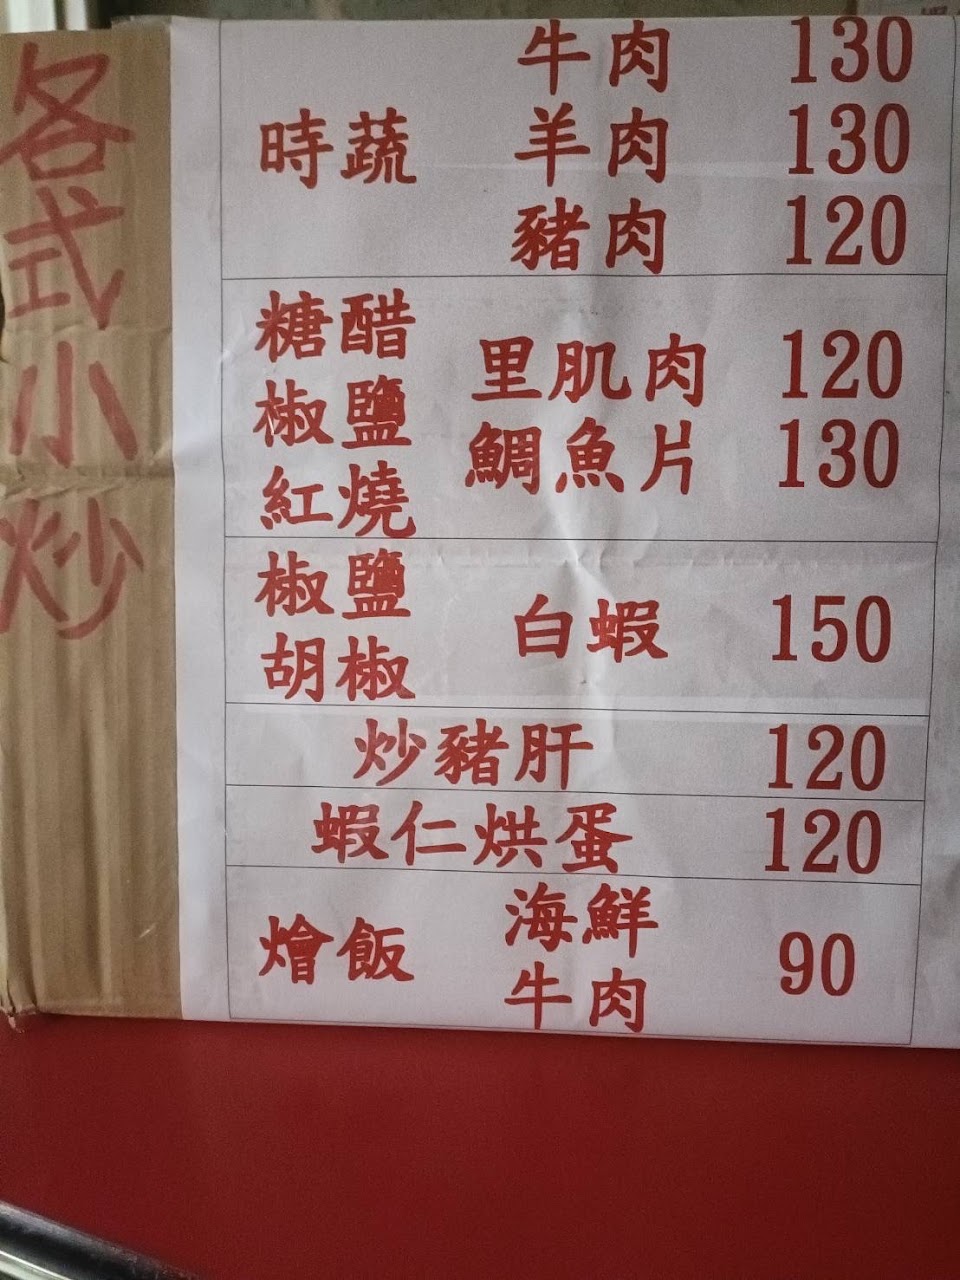 各式小炒
牛肉 130
時蔬 羊肉 130
豬肉 120
糖醋
椒鹽
紅燒
里肌肉 120
鯛魚片 130
椒鹽
胡椒
白蝦 150
炒豬肝 120
蝦仁烘蛋 120
燴飯
海鮮
牛肉
90